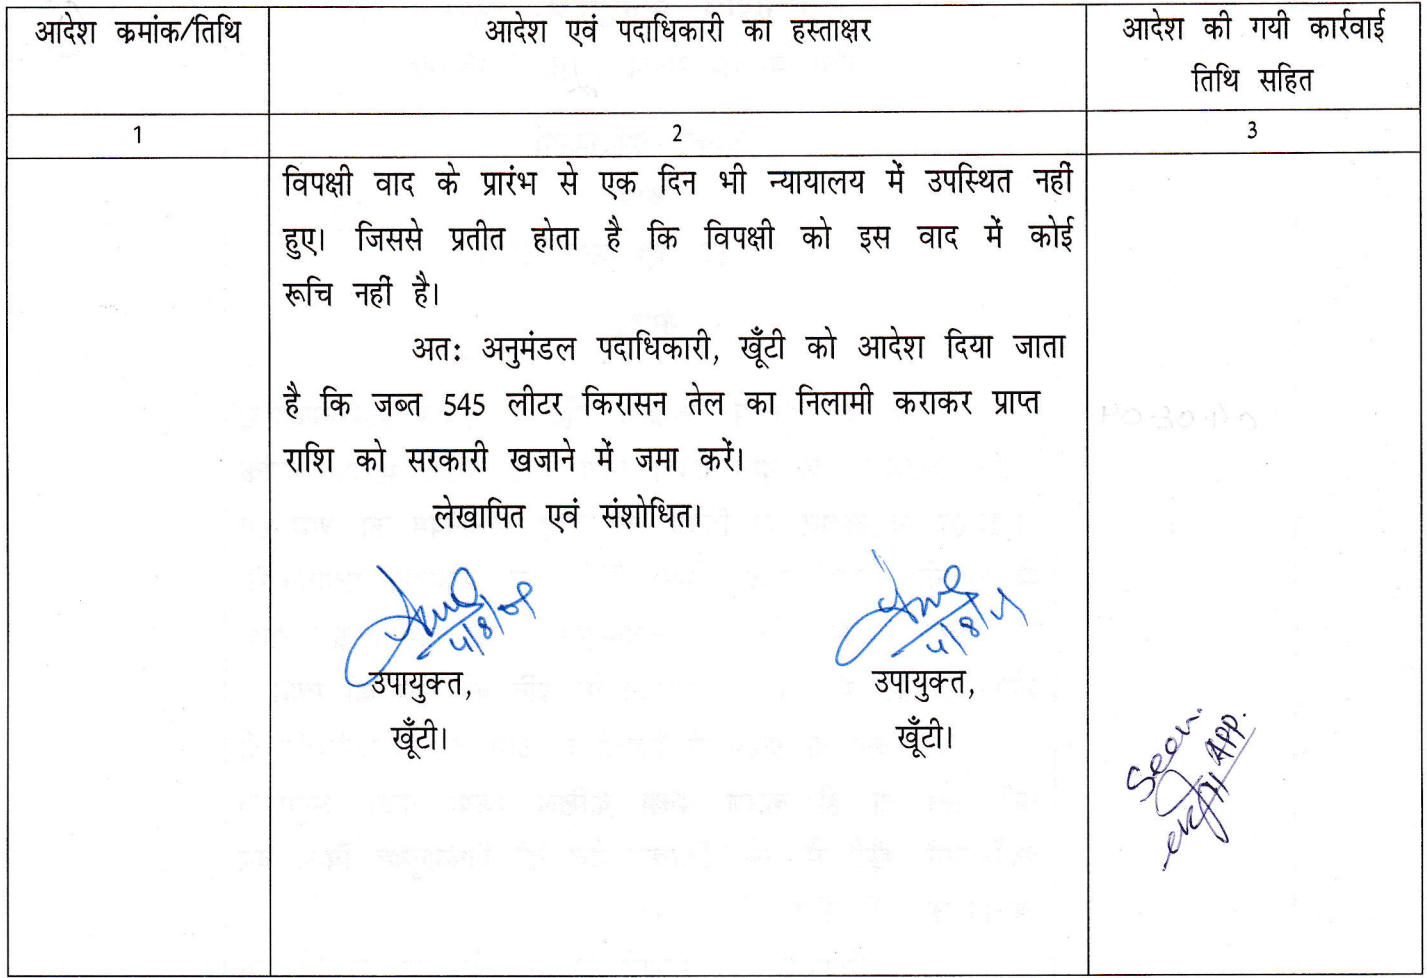 आदेश क्रमांक/तिथि
आदेश एवं पदाधिकारी का हस्ताक्षर
आदेश की गयी कार्रवाई
तिथि सहित
1
2
3
विपक्षी वाद के प्रारंभ से एक दिन भी न्यायालय में उपस्थित नहीं
हुए। जिससे प्रतीत होता है कि विपक्षी को इस वाद में कोई
रूचि नहीं है।
अतः अनुमंडल पदाधिकारी, खूँटी को आदेश दिया जाता
है कि जब्त 545 लीटर किरासन तेल का निलामी कराकर प्राप्त
राशि को सरकारी खजाने में जमा करें।
लेखापित एवं संशोधित।
उपायुक्त,
खूँटी।
उपायुक्त,
खूँटी।
Seen.
APP.